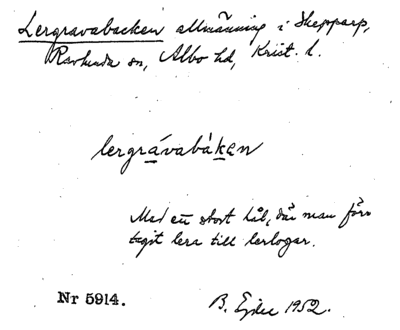 Lergravabacken allmänning i Skepparp,
Ravlunda sn, Albo hd, Krist. l.
lergrávabàken
Med ett stort hål, där man förr
tagit lera till lerlogar.
Nr 5914.
B. Ejder 1952.